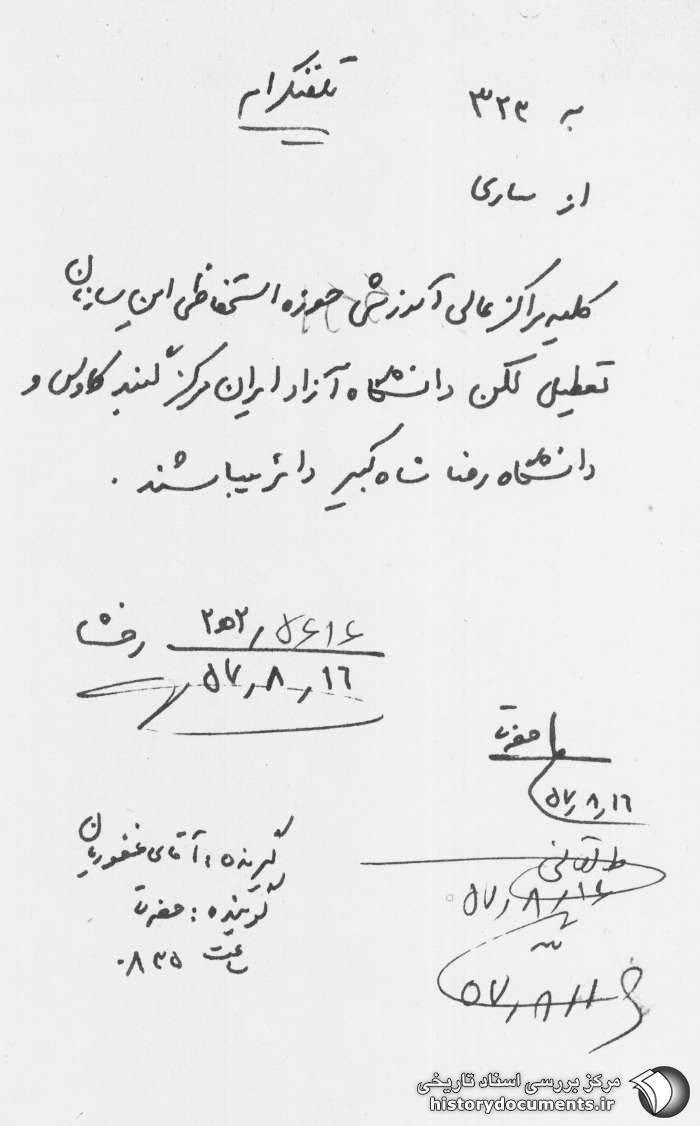 تلفنگرام
به ۳۲۳
از ساری
کلیه مراکز عالی آموزشی حوزه استحفاظی این سازمان
تعطیل لکن دانشگاه آزاد ایران مرکز گنبد کاوس و
دانشگاه رضا شاه کبیر دائر میباشند .
۲ﻫ۲/۵۶۱۶
۵۷/۸/۱۶
حضرت
۵۷/۸/۱۶
گیرنده : آقای غفوریان
گوینده : حضرت
ساعت ۰۸۳۵
طالقانی
۵۷/۸/۱۶
۵۷/۸/۱۶
مرکز بررسی اسناد تاریخی
historydocuments.ir